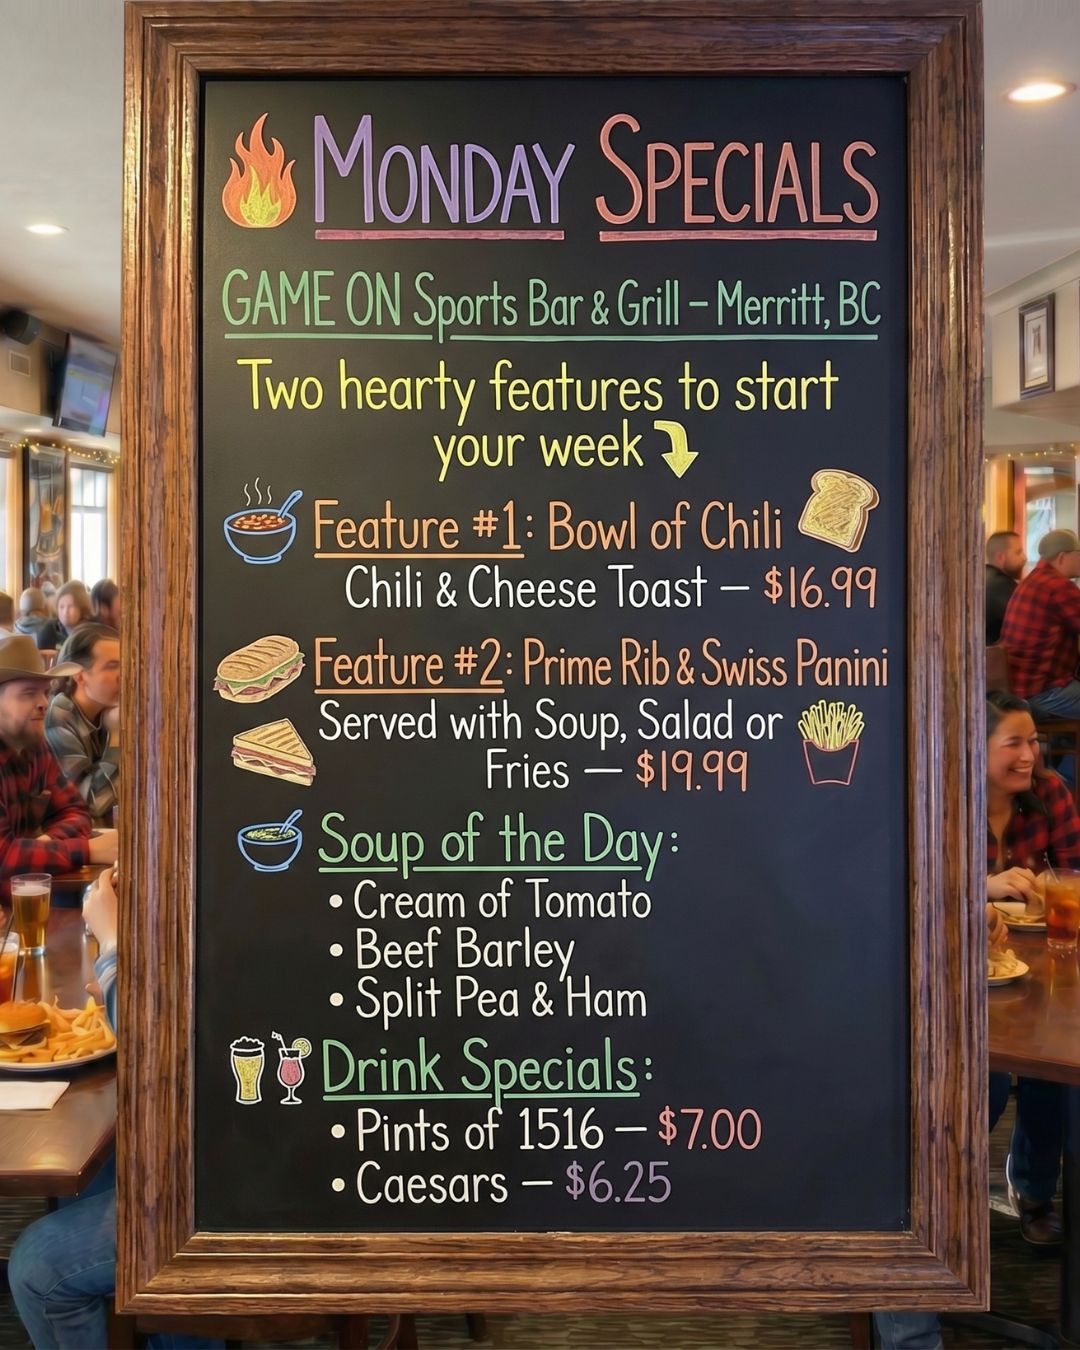 MONDAY SPECIALS
GAME ON Sports Bar & Grill – Merritt, BC
Two hearty features to start
your week
Feature #1: Bowl of Chili
Chili & Cheese Toast – $16.99
Feature #2: Prime Rib & Swiss Panini
Served with Soup, Salad or
Fries – $19.99
Soup of the Day:
• Cream of Tomato
• Beef Barley
• Split Pea & Ham
Drink Specials:
• Pints of 1516 – $7.00
• Caesars – $6.25